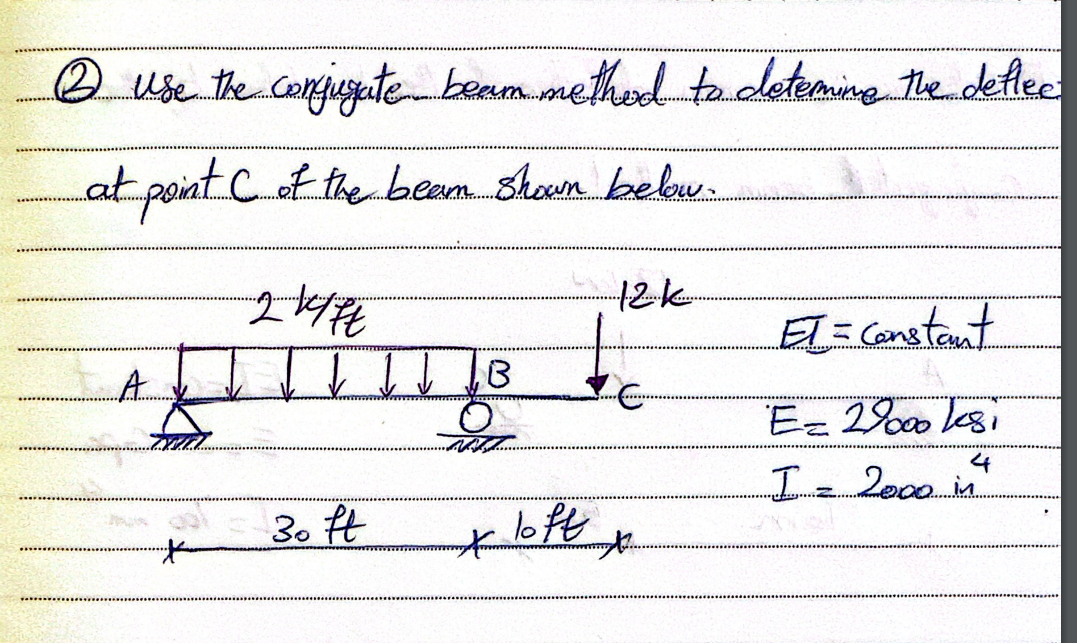 ② Use the conjugate-beam method to determine the deflec
at point C of the beam shown below.
2 k/ft
12k
EI = constant
A
B
C
E = 29000 ksi
I = 2000 in⁴
30 ft
10 ft